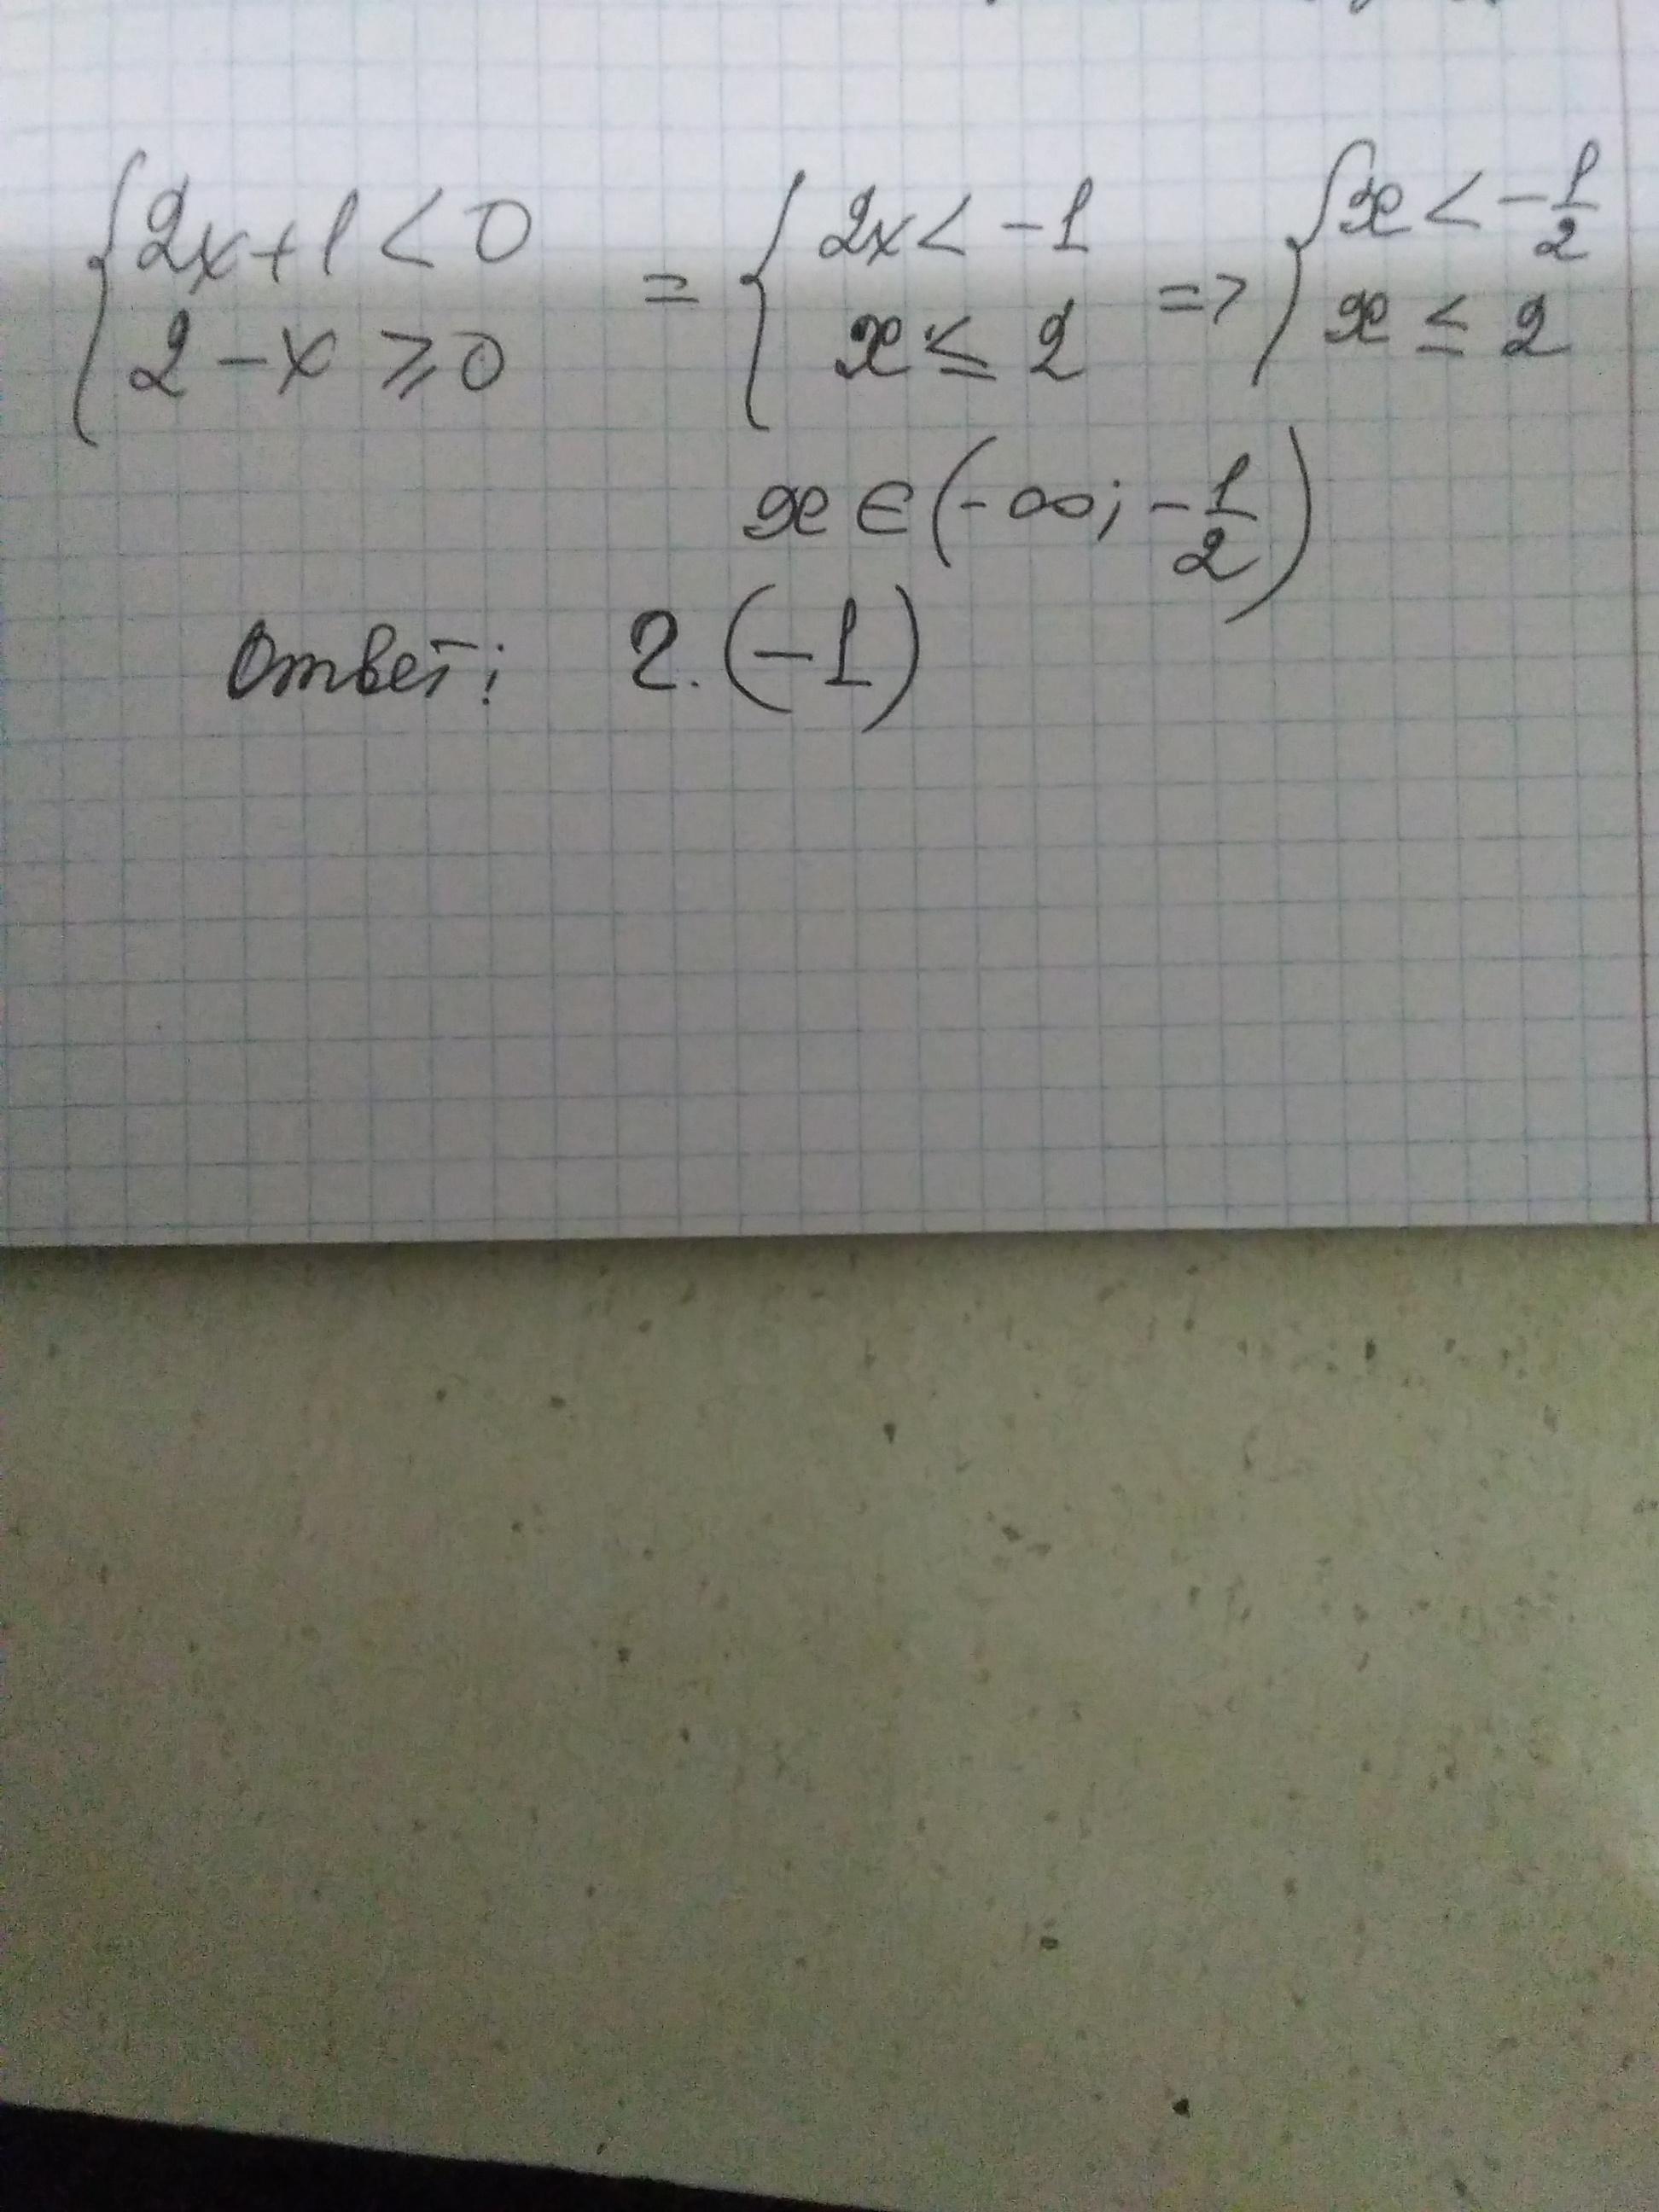 {2x+1<0 = {2x<-1 => {x<-1/2
2-x⩾0 x≤2 x≤2
x∈(-∞;-1/2)
Ответ: 2.(-1)